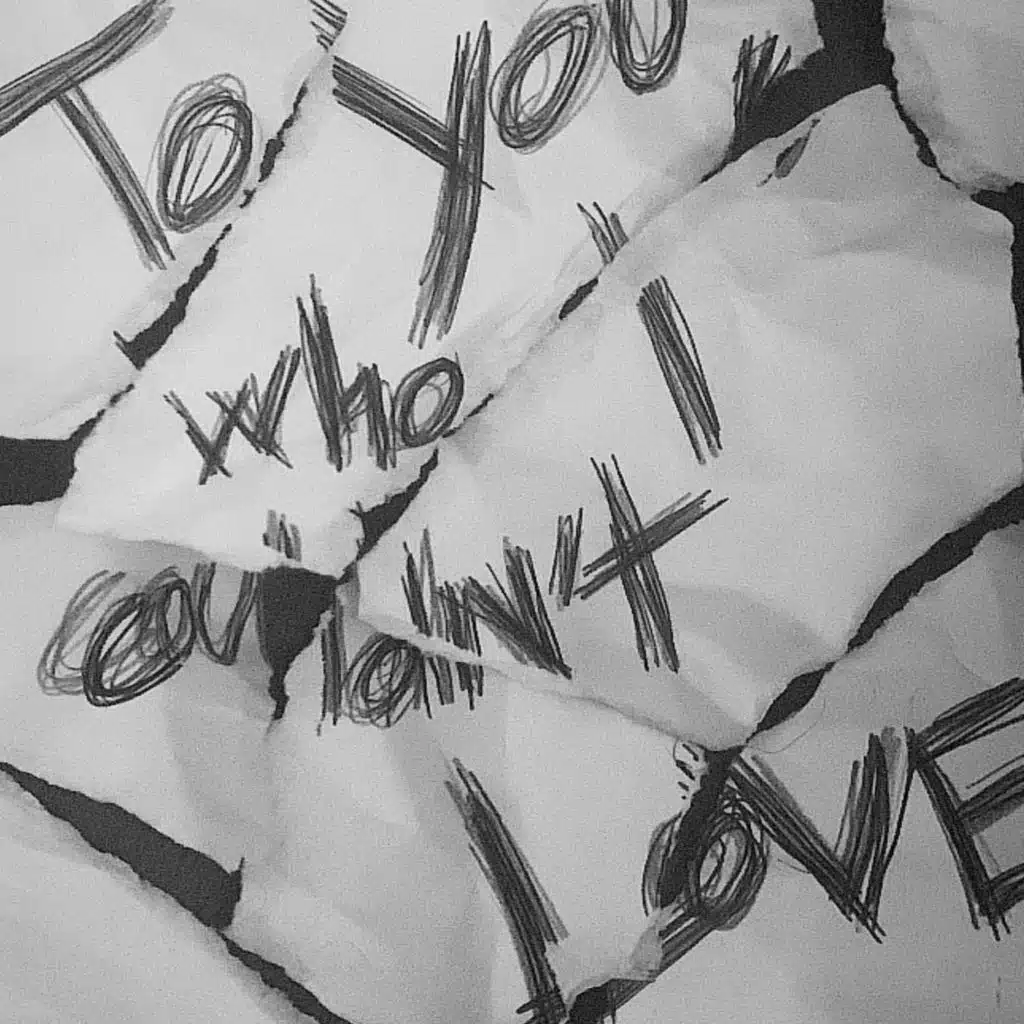 To You,
who I
couldN't
LOVE